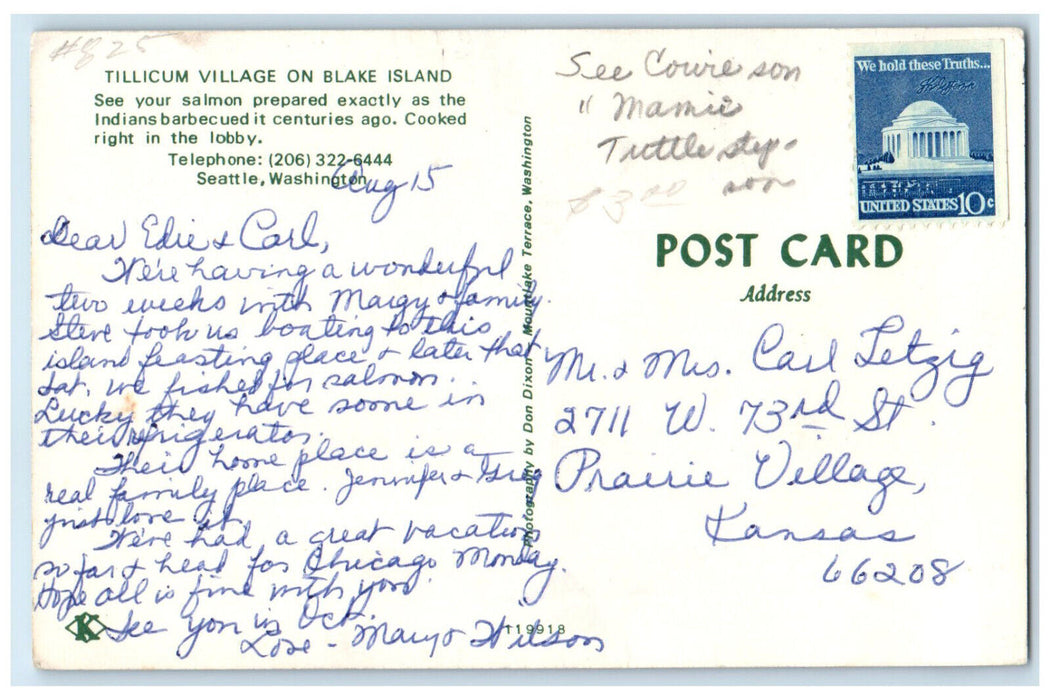 #825
TILLICUM VILLAGE ON BLAKE ISLAND
See your salmon prepared exactly as the
Indians barbecued it centuries ago. Cooked
right in the lobby.
Telephone: (206) 322-6444
Seattle, Washington
Aug 15
Dear Edie & Carl,
We're having a wonderful
two weeks with Margy & family.
Steve took us boating to this
island feasting place & later that
Sat. we fished for salmon...
Lucky they have some in
their refrigerator.
Their home place is a
real family place. Jennifer & Greg
just love it.
We've had a great vacation
so far & head for Chicago Monday.
Hope all is fine with you.
See you in Oct.
Love - Mary & Wilson
K
119918
Photography by Don Dixon - Mountlake Terrace, Washington
See Cowie son
" Mamie
Tuttle step-
son
$3.00
We hold these Truths...
UNITED STATES 10c
POST CARD
Address
Mr. & Mrs. Carl Letzig
2711 W. 73rd St.
Prairie Village,
Kansas
66208